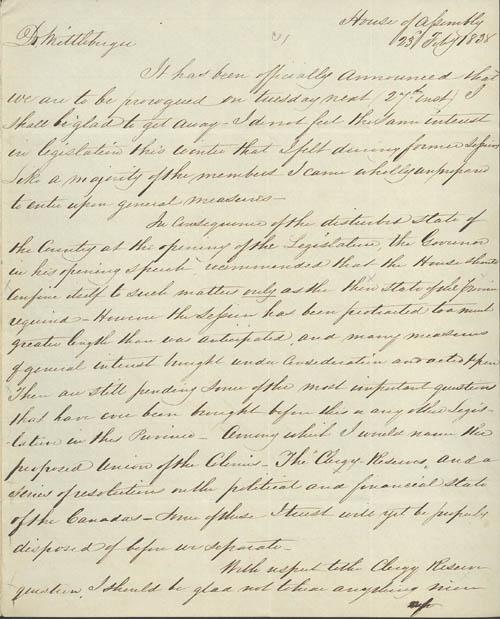 House of Assembly
23d Feby 1838
Dr Mittleberger
It has been officially announced that
we are to be prorogued on tuesday next (27th inst) I
shall be glad to get away - I do not feel the same interest
in legislation this winter that I felt during former Sessions
Like a majority of the members I came wholly unprepared
to enter upon general measures -
In consequence of the disturbed state of
the Country at the opening of the Legislature, the Governor
in his opening speech recommended that the House should
confine itself to such matters only as the then State of the Province
required - However the Session has been protracted to a much
greater length than was anticipated, and many measures
of general interest brought under consideration and acted upon
There are still pending some of the most important questions
that have ever been brought before this or any other Legis-
-lature in this Province - Among which I would name the
proposed Union of the Colonies - The Clergy Reserves, and a
Series of resolutions on the political and financial State
of the Canadas - Some of these I trust will yet be properly
disposed of before we separate -
With respect to the Clergy Reserve
question, I should be glad not to hear anything more